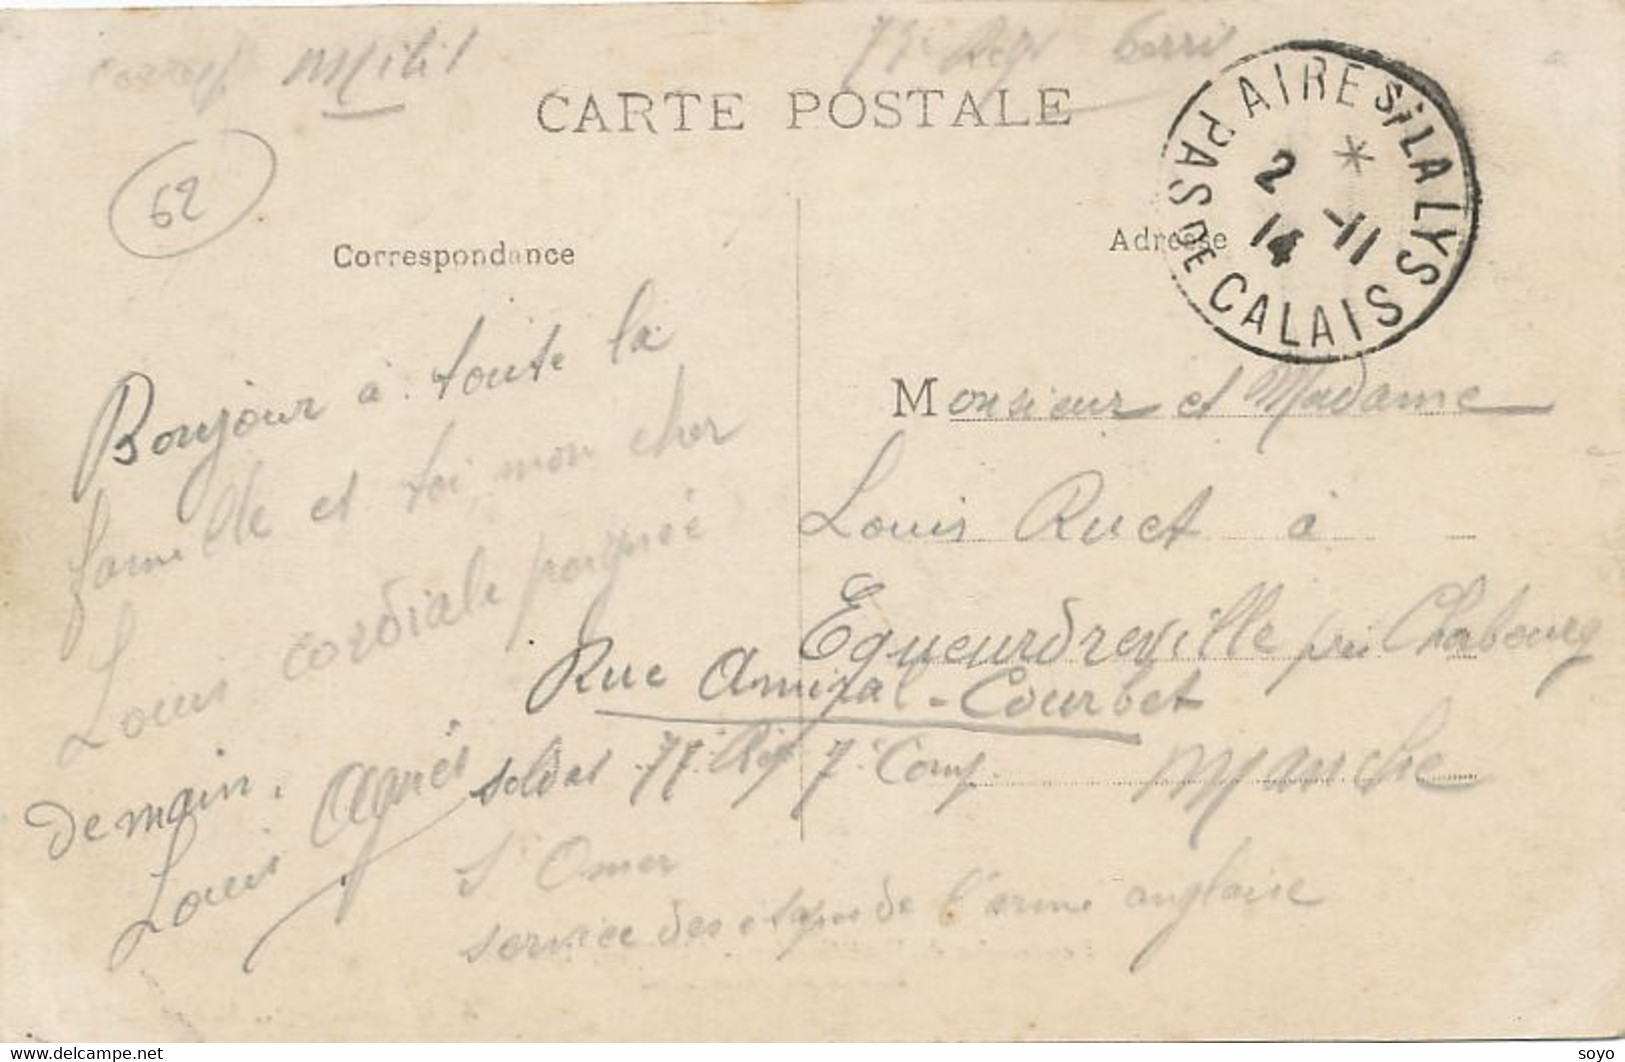 Milit
Regt Terri
CARTE POSTALE
AIRE S/ LA LYS
PAS DE CALAIS
*
2 -11
14
62
Correspondance
Adresse
Bonjour à toute la
famille et toi mon cher
Louis cordiale poignée
de main.
Louis
soldat 77e Reg 7e Comp
St Omer
service des étapes de l'armé anglaise
Monsieur et Madame
Louis Ruet à
Equeurdreville près Cherbourg
Rue Amiral-Courbet
Manche
delcampe.net
soyo